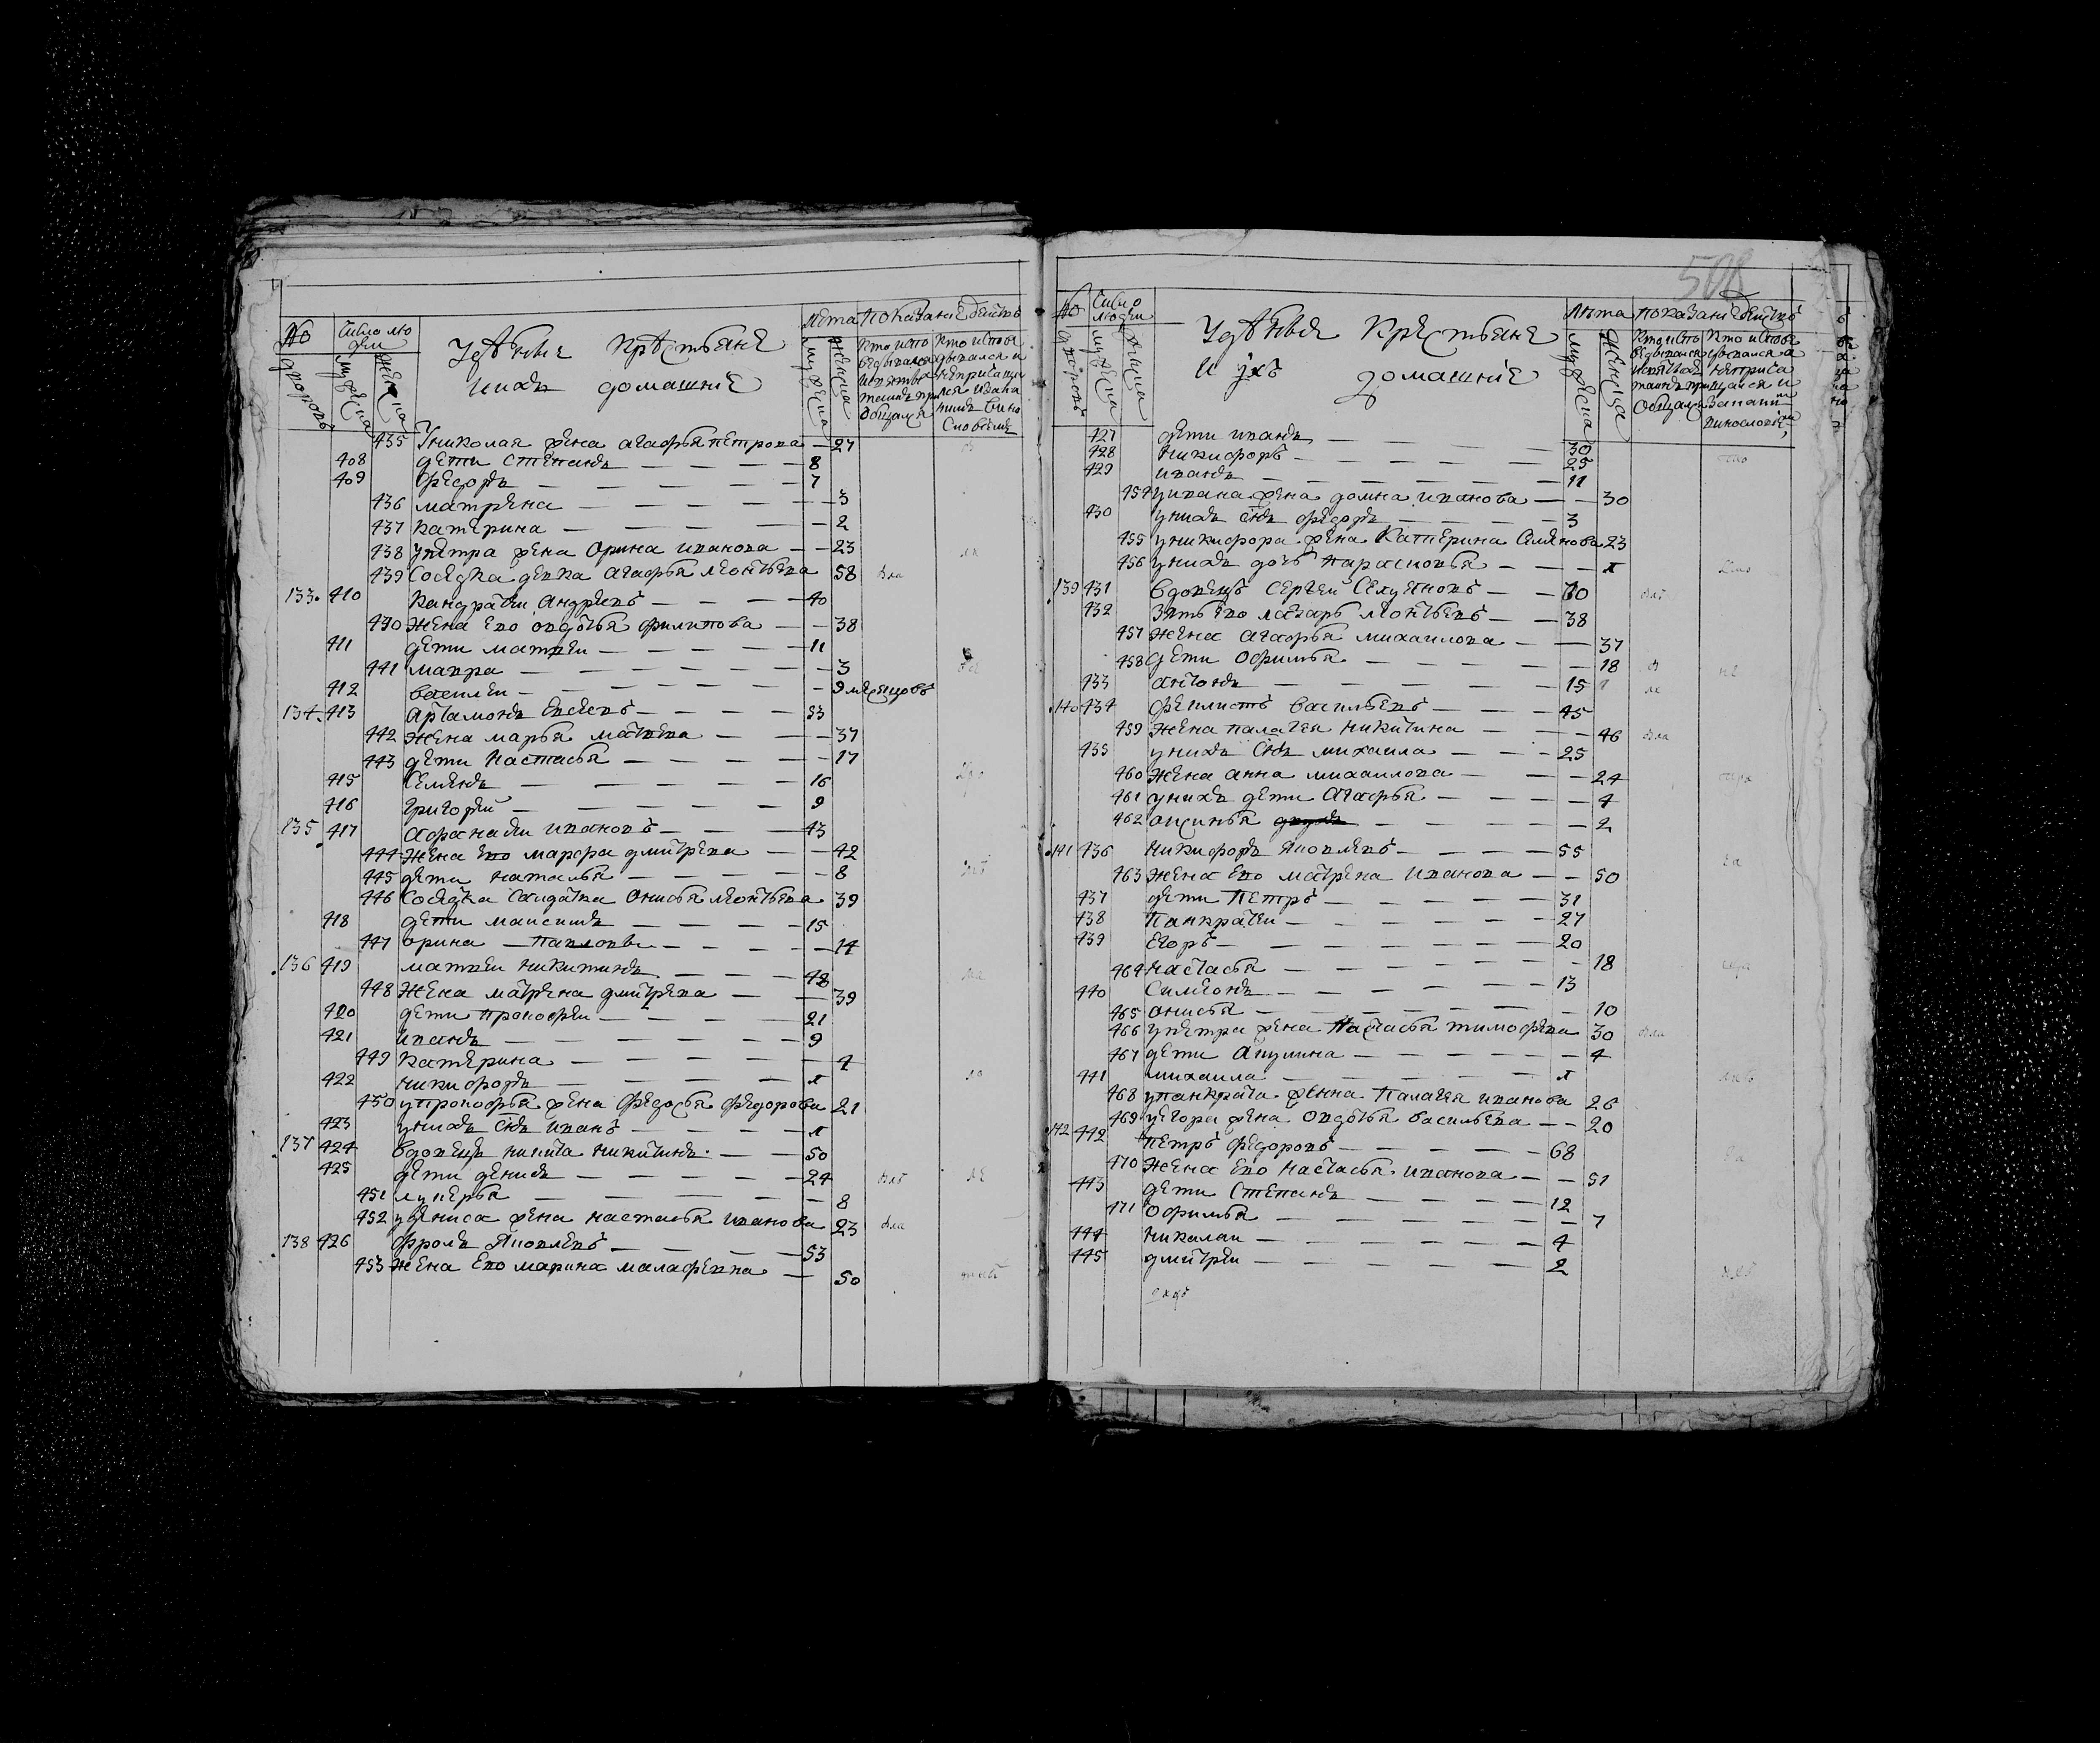 № дворовъ
Число людеи
мужеска
женска
Удѣлные крѣстьяне
и ихъ домашние
Лѣта
мужеска
женска
показание бытия
435 У николая жена агафья петрова — 27
408 дети степанъ — 8
409 федоръ — 7
436 матрена — 3
437 катерина — 2
438 у петра жена орина иванова — 23
439 соседка девка агафья леонтьева 58
133. 410 кандратеи андреевъ — 40
440 жена ево овдотья филипова — 38
411 дети матвеи — 11
441 мавра — 3
412 василеи — 9 месяцовъ
134. 413 артамонъ евсеевъ — 53
442 жена марья матвева — 37
443 дети настасья — 17
415 семенъ — 16
416 григореи — 9
135 417 афанасеи ивановъ — 43
444 жена ево марфа дмитрева — 42
445 дети наталья — 8
446 соседка салдатка онисья леонтьева 39
418 дети максимъ — 15
447 орина — павловы — 14
136 419 матвеи никитинъ — 48
448 жена матрена дмитрева — 39
420 дети прокофеи — 21
421 иванъ — 9
449 катерина — 4
422 никифоръ — 1
450 у прокофья жена федосья федорова 21
423 у нихъ сынъ иванъ — 1
137 424 вдовецъ никита никитинъ — 50
425 дети денисъ — 24
451 лукерья — 8
452 у дениса жена настасья иванова 23
138 426 фролъ яковлевъ — 53
453 жена ево марина малафевна — 50
508
№ дворовъ
Число людеи
мужеска
женска
Удѣлные крестьяне
и ихъ домашние
Лѣта
мужеска
женска
показание бытия
427 дети иванъ — 30
428 никифоръ — 25
429 иванъ — 11
454 у ивана жена домна иванова — 30
430 у нихъ сынъ федоръ — 3
455 у никифора жена катерина семенова 23
456 у нихъ дочь парасковья — 1
139 431 вдовецъ сергеи селуяновъ — 70
432 зять ево лазарь леонтьевъ — 38
457 жена агафья михаилова — 37
458 дети офимья — 18
433 антонъ — 15
140 434 феклистъ васильевъ — 45
459 жена палагея никитина — 46
435 у нихъ сынъ михаила — 25
460 жена анна михаилова — 24
461 у нихъ дети агафья — 4
462 аксинья — 2
141 436 никифоръ яковлевъ — 55
463 жена ево матрена иванова — 50
437 дети петръ — 31
438 панкратеи — 27
439 егоръ — 20
464 настасья — 18
440 симеонъ — 13
465 анисья — 10
466 у петра жена настасья тимофева 30
467 дети акулина — 4
441 михаила — 1
468 у панкрата женна палагея иванова 26
469 у егора жена овдотья васильева — 20
142 442 петръ федоровъ — 68
470 жена ево настасья иванова — 51
443 дети степанъ — 12
471 офимья — 7
444 николаи — 4
445 дмитреи — 2